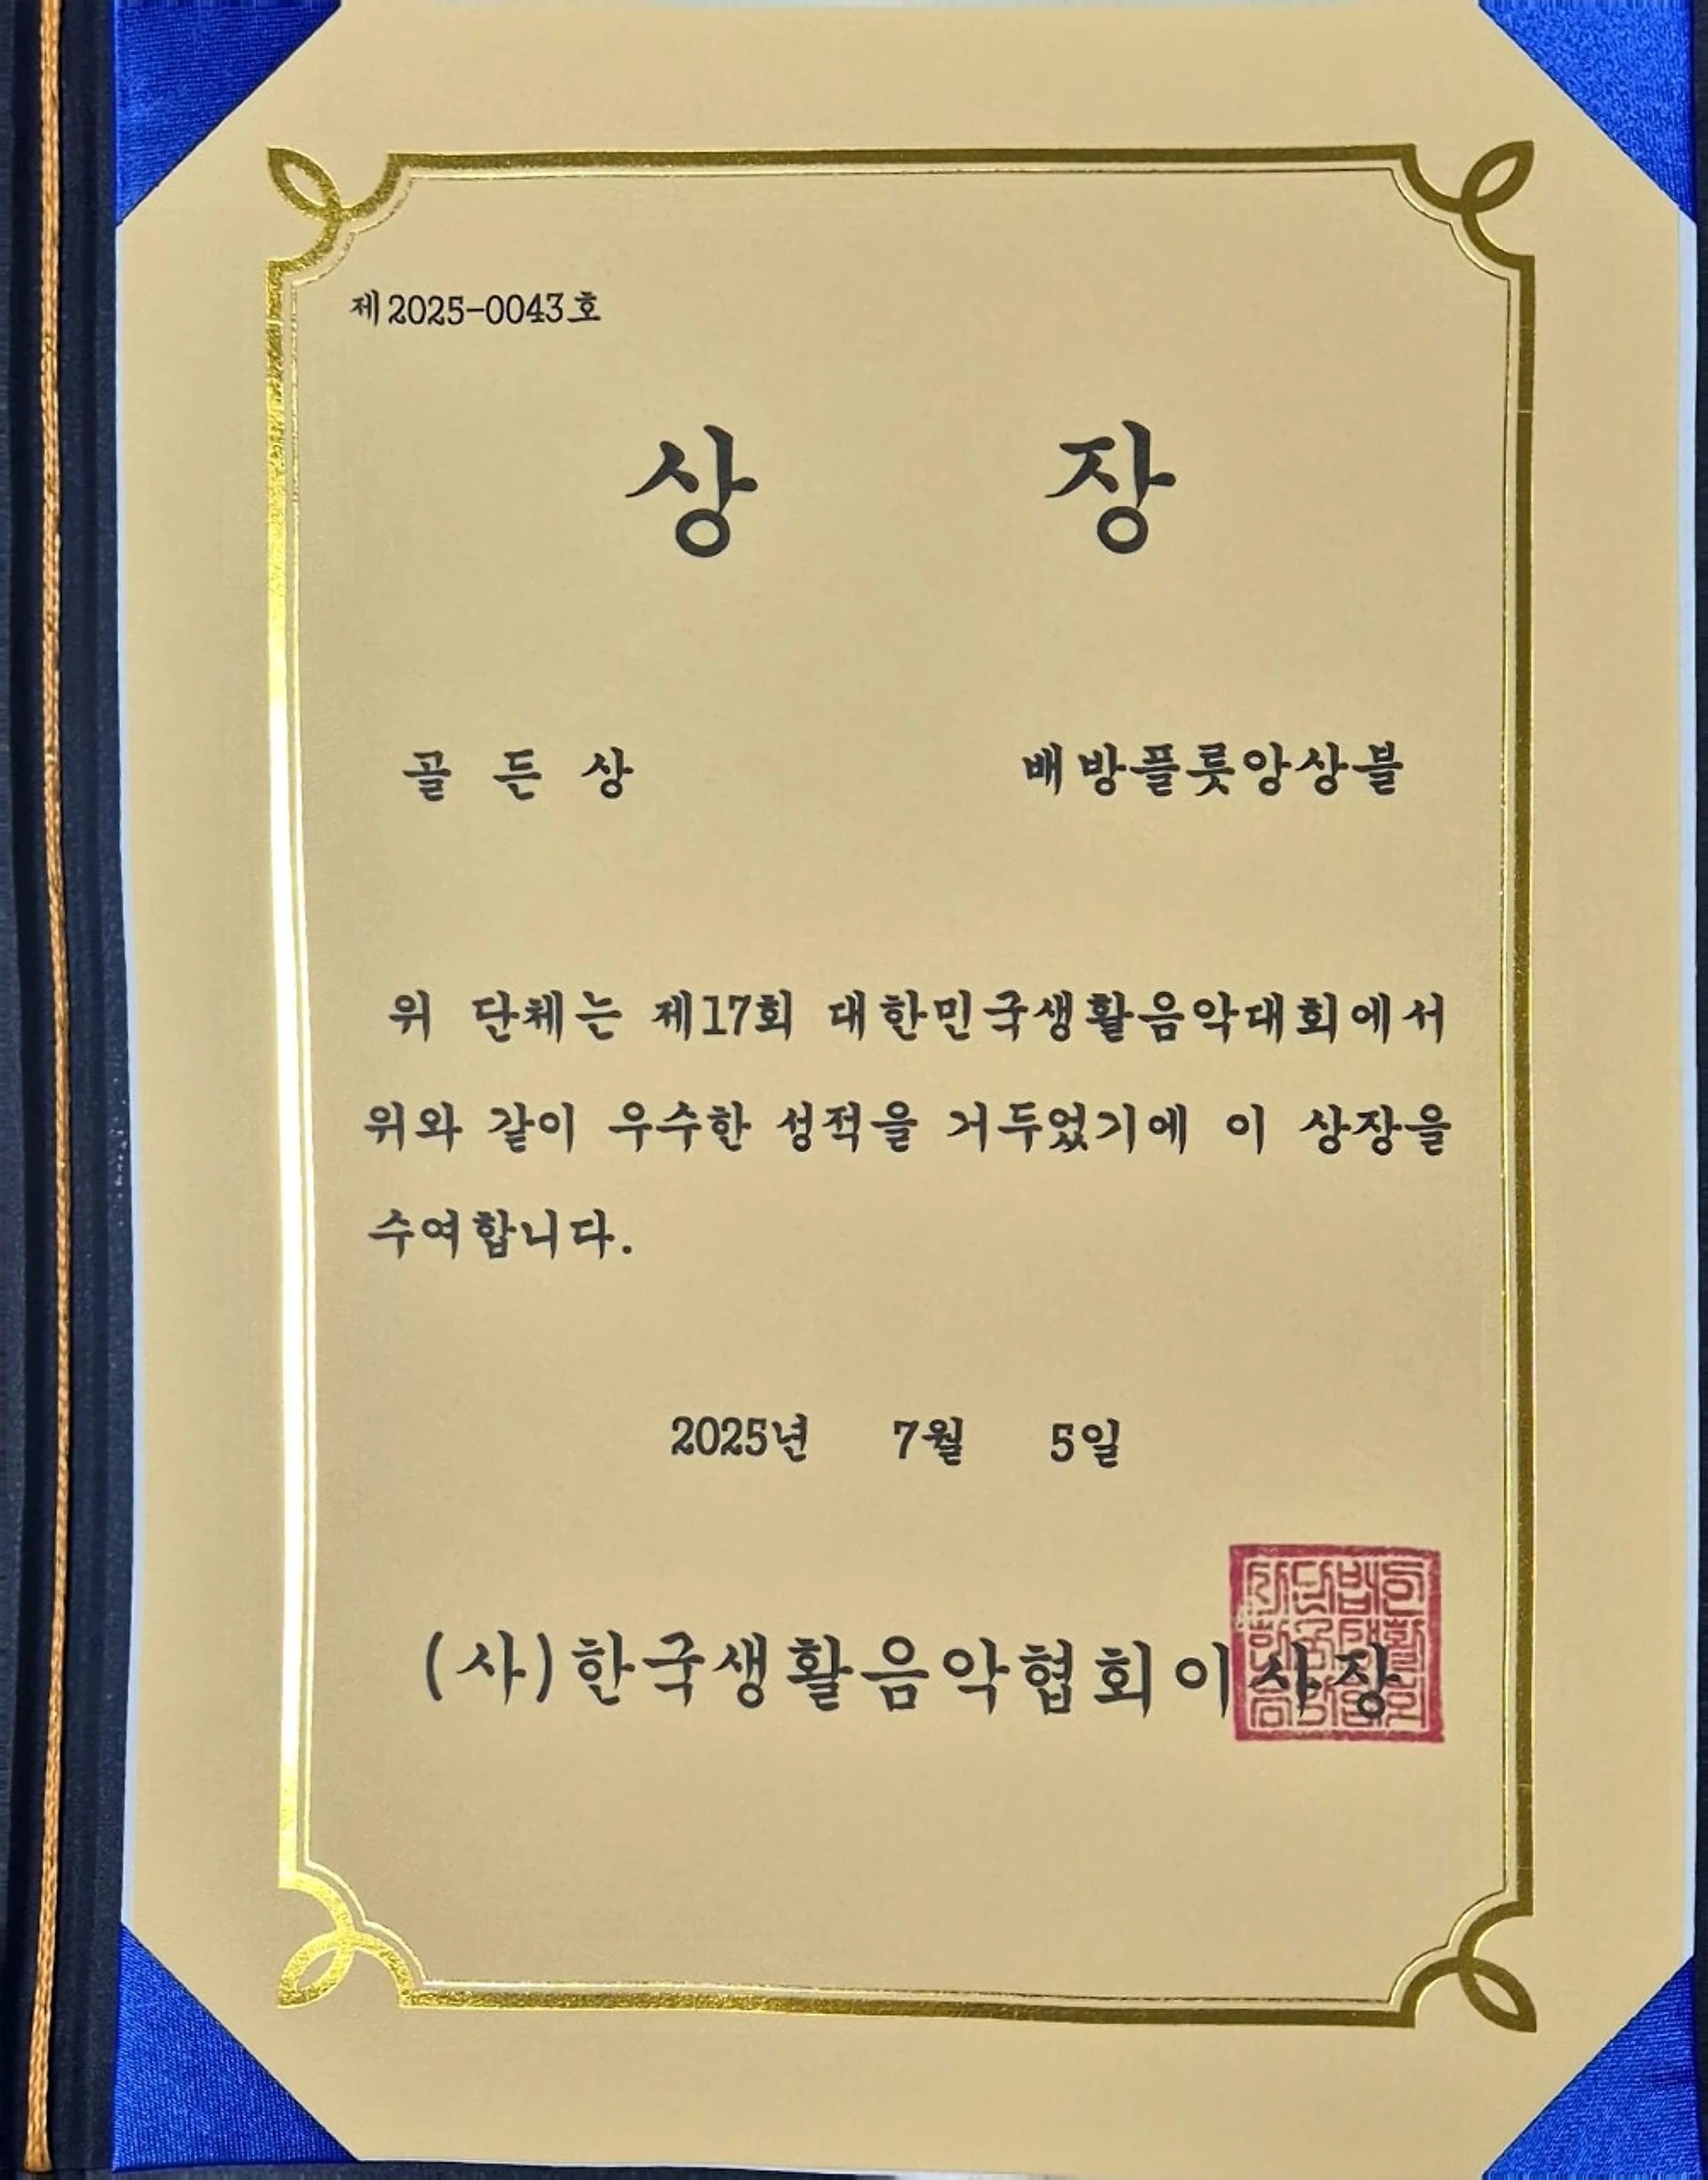 제2025-0043호
상 장
골 든 상 배방플룻앙상블
위 단체는 제17회 대한민국생활음악대회에서
위와 같이 우수한 성적을 거두었기에 이 상장을
수여합니다.
2025년 7월 5일
(사)한국생활음악협회이사장